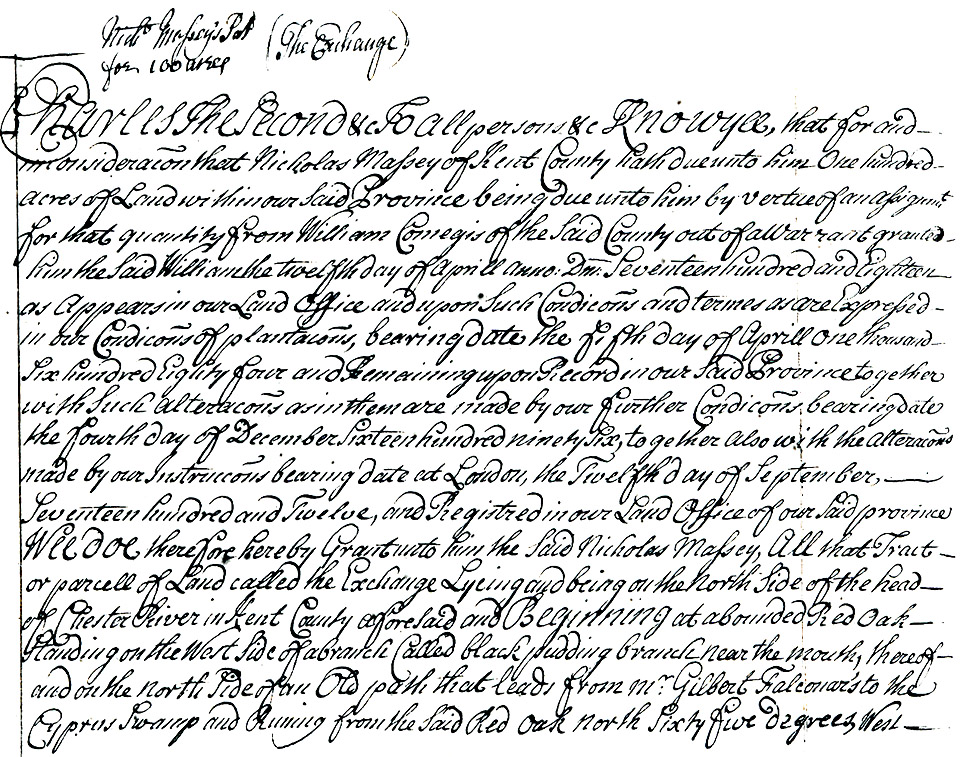 Nichs Massey's Pat (The Exchange)
for 100 acres
Charles The Second &c To all persons &c Know yee, that for and
in Consideracon that Nicholas Massey of Kent County hath due unto him One hundred
acres of Land within our Said Province being due unto him by vertue of an Assignmt
for that quantity from William Comegis of the Said County out of a Warrant granted
him the Said William the twelfth day of Aprill anno: Dm: Seventeen hundred and Eighteen
as Appears in our Land Office and upon Such Condicons and termes as are Expressed
in our Condicons of plantacons, bearing date the fifth day of Aprill One thousand
Six hundred Eighty four and Remaining upon Record in our Said Province together
with Such alteracons as in them are made by our further Condicons bearing date
the fourth day of December Sixteen hundred ninety Six, together also with the alteracons
made by our Instruccons bearing date at London, the Twelfth day of September,
Seventeen hundred and Twelve, and Registred in our Land Office of our Said province
Wee doe therefore hereby Grant unto him the Said Nicholas Massey, All that Tract
or parcell of Land called the Exchange Lyeing and being on the North Side of the head
of Chester River in Kent County aforesaid and Beginning at a bounded Red Oak
Standing on the West Side of a branch Called black pudding branch near the mouth, thereof
and on the north Side of an Old path that leads from mr. Gilbert Falconar's to the
Cyprus Swamp and Runing from the Said Red Oak north Sixty five degrees, West